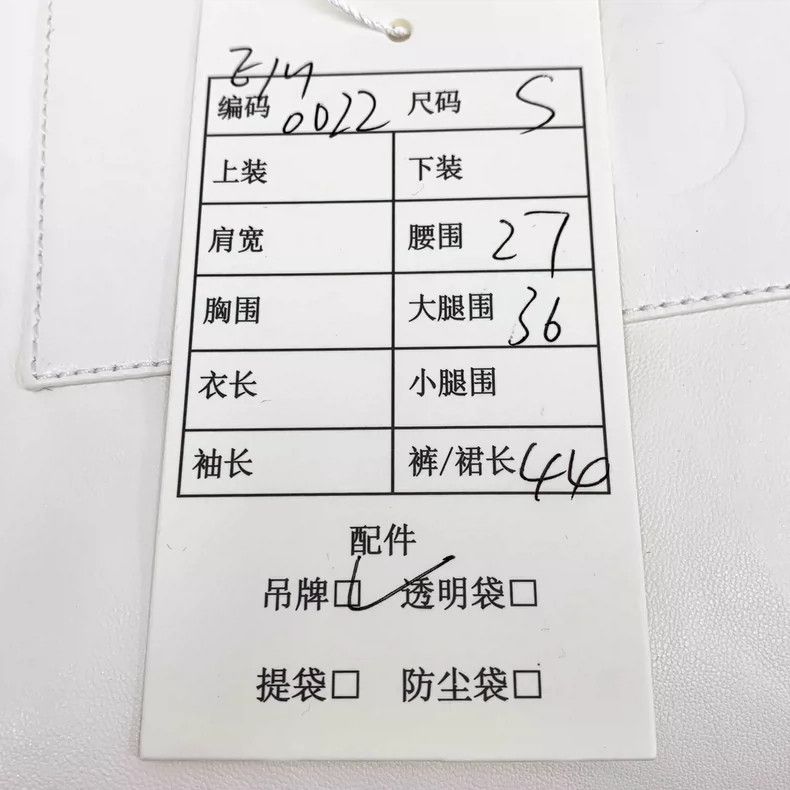 编码 0022 尺码 S
上装 下装
肩宽 腰围 27
胸围 大腿围 36
衣长 小腿围
袖长 裤/裙长 44
配件
吊牌□ 透明袋□
提袋□ 防尘袋□